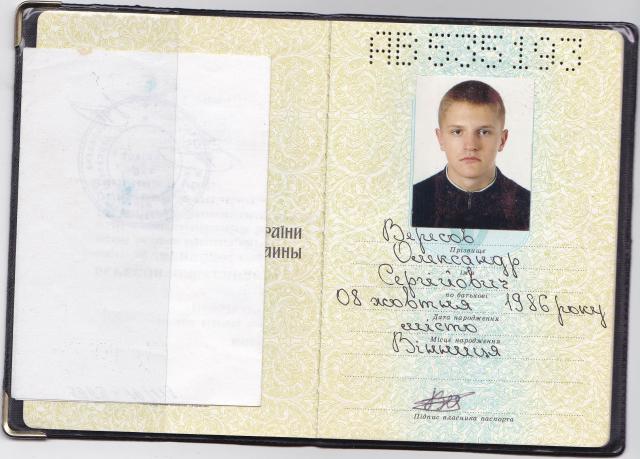 АВ535193
раїни
аины
Вересов
Прізвище
Олександр
Ім'я
Сергійович
по батькові
08 жовтня 1986 року
Дата народження
місто
Місце народження
Вінниця
Підпис власника паспорта